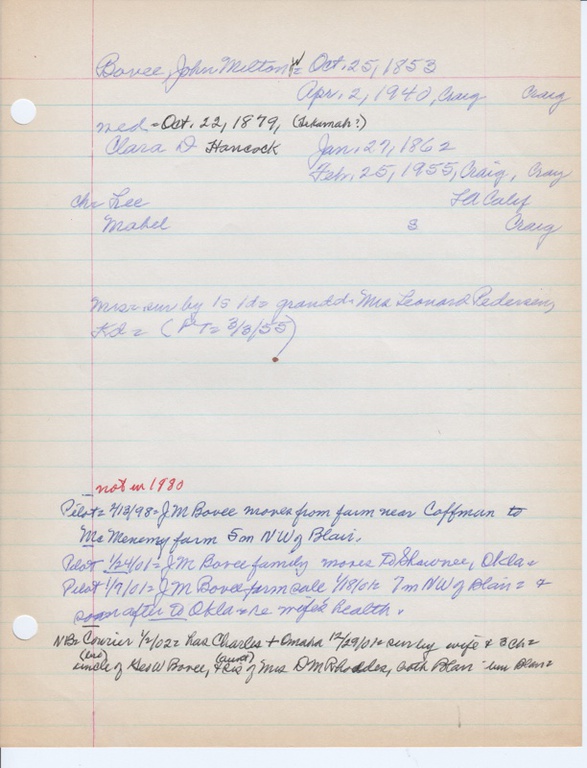 Bovee, John Milton W = Oct. 25, 1853
Apr. 2, 1940, Craig Craig
med = Oct. 22, 1879, (Tekamah?)
Clara D Hancock Jan. 27, 1862
Feb. 25, 1955, Craig, Craig
ch = Lee LA Calif
Mabel 3 Craig
Mrs = sur by 1s 1d = grandd. Mrs Leonard Pedersen,
(PT = 3/3/55)
not in 1980
Pilot = 2/13/98 = J M Bovee moves from farm near Coffman to
Mc Menemy farm 5 on NW of Blair.
Pilot 1/24/01 = J M Bovee family moves to Shawnee, Okla =
Pilot 1/7/01 = J M Bovee farm sale 1/18/01 = 7m NW of Blair = &
soon after to Okla = re wife's health.
NB = Courier 1/2/02 = has Charles + Omaha 12/29/01 = sur by wife & 3 ch =
(bro) (aunt)
uncle of Geo W Bovee, & of Mrs D M Rhoades, both Blair = Blair =